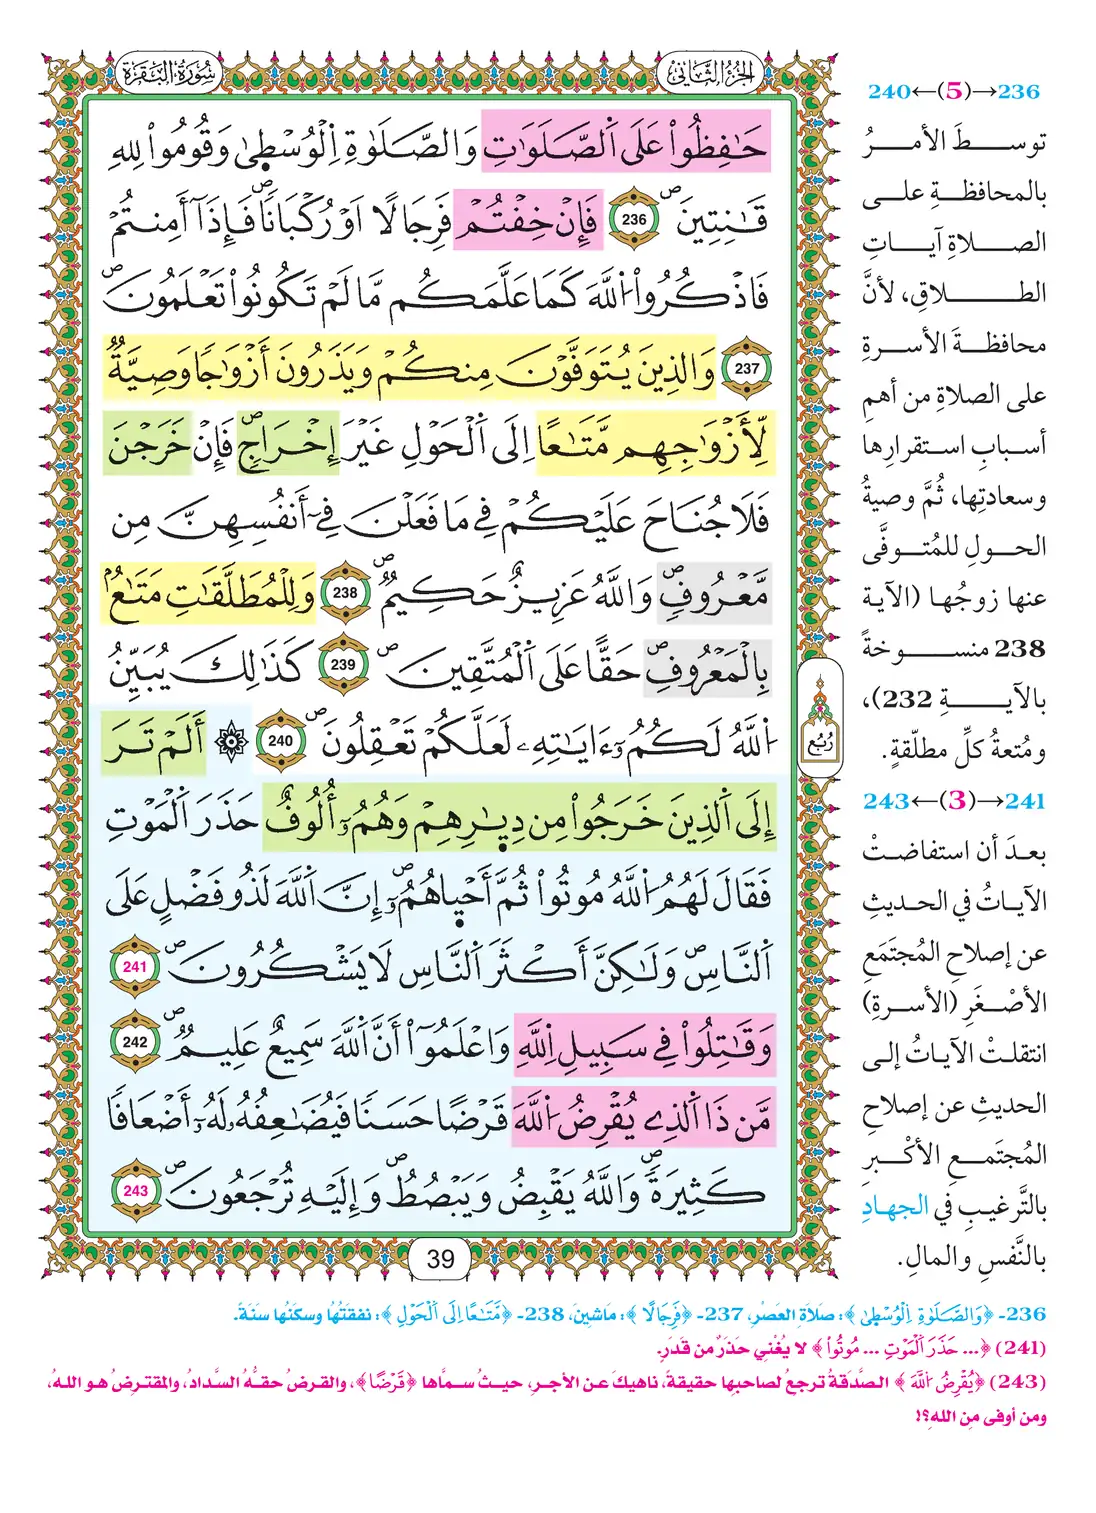 الجزء الثاني
سورة البقرة
حَٰفِظُواْ عَلَى اَ۬لصَّلَوَٰتِ وَالصَّلَوٰةِ اِ۬لْوُسْط۪يٰ وَقُومُواْ لِلهِ
قَٰنِتِينَۖ 236 فَإِنْ خِفْتُمْ فَرِجَالًا اَوْ رُكْبَانًاۖ فَإِذَآ أَمِنتُمْ
فَاذْكُرُواْ اُ۬للَّهَ كَمَا عَلَّمَكُم مَّا لَمْ تَكُونُواْ تَعْلَمُونَۖ
237 وَالذِينَ يُتَوَفَّوْنَ مِنكُمْ وَيَذَرُونَ أَزْوَٰجًا وَصِيَّةٌ
لِّأَزْوَٰجِهِم مَّتَٰعًا اِلَى اَ۬لْحَوْلِ غَيْرَ إِخْرَاجٍۖ فَإِنْ خَرَجْنَ
فَلَا جُنَاحَ عَلَيْكُمْ فِي مَا فَعَلْنَ فِيٓ أَنفُسِهِنَّ مِن
مَّعْرُوفٍۖ وَاللَّهُ عَزِيزٌ حَكِيمٌۖ 238 وَلِلْمُطَلَّقَٰتِ مَتَٰعُۢ
بِالْمَعْرُوفِۖ حَقًّا عَلَى اَ۬لْمُتَّقِينَۖ 239 كَذَٰلِكَ يُبَيِّنُ
اُ۬للَّهُ لَكُمُۥٓ ءَايَٰتِهِۦ لَعَلَّكُمْ تَعْقِلُونَۖ 240 ۞ أَلَمْ تَرَ
إِلَى اَ۬لذِينَ خَرَجُواْ مِن دِيٰ۪رِهِمْ وَهُمُۥٓ أُلُوفٌ حَذَرَ اَ۬لْمَوْتِ
فَقَالَ لَهُمُ اُ۬للَّهُ مُوتُواْ ثُمَّ أَحْي۪اهُمُۥٓۖ إِنَّ اَ۬للَّهَ لَذُو فَضْلٍ عَلَى
اَ۬لنَّاسِۖ وَلَٰكِنَّ أَكْثَرَ اَ۬لنَّاسِ لَا يَشْكُرُونَۖ 241
وَقَٰتِلُواْ فِي سَبِيلِ اِ۬للَّهِ وَاعْلَمُوٓاْ أَنَّ اَ۬للَّهَ سَمِيعٌ عَلِيمٌۖ 242
مَّن ذَا اَ۬لذِي يُقْرِضُ اُ۬للَّهَ قَرْضًا حَسَنًا فَيُضَٰعِفُهُۥ لَهُۥٓ أَضْعَافًا
كَثِيرَةًۖ وَاللَّهُ يَقْبِضُ وَيَبْصُطُۖ وَإِلَيْهِ تُرْجَعُونَۖ 243
رُبُع
39
236→(5)←240
توسطَ الأمرُ
بالمحافظةِ على
الصلاةِ آياتِ
الطلاقِ، لأنَّ
محافظةَ الأسرةِ
على الصلاةِ من أهمِ
أسبابِ استقرارِها
وسعادتِها، ثُمَّ وصيةُ
الحولِ للمُتوفَّى
عنها زوجُها (الآية
238 منسوخةً
بالآيةِ 232)،
ومُتعةُ كلِّ مطلّقةٍ.
241→(3)←243
بعدَ أن استفاضتْ
الآياتُ في الحديثِ
عن إصلاحِ المُجتَمَعِ
الأصْغَرِ (الأسرةِ)
انتقلتْ الآياتُ إلى
الحديثِ عن إصلاحِ
المُجتَمعِ الأكْبرِ
بالتَّرغيبِ في الجهادِ
بالنَّفسِ والمالِ.
236- ﴿وَالصَّلَوٰةِ اِ۬لْوُسْط۪يٰ﴾: صَلَاةِ العَصْرِ، 237- ﴿فَرِجَالًا﴾: مَاشِينَ، 238- ﴿مَّتَٰعًا اِلَى اَ۬لْحَوْلِ﴾: نفقَتُهُا وسكنُها سَنَةً.
(241) ﴿... حَذَرَ اَ۬لْمَوْتِ ... مُوتُواْ﴾ لا يُغْنِي حَذَرٌ من قَدَرٍ.
(243) ﴿يُقْرِضُ اُ۬للَّهَ﴾ الصَّدَقةُ ترجعُ لصاحبِها حقيقةً، ناهيكَ عن الأجرِ، حيثُ سمَّاها ﴿قَرْضًا﴾، والقرضُ حقُّهُ السَّدادُ، والمقترضُ هو اللهُ،
ومن أوفى مِن اللهِ؟!